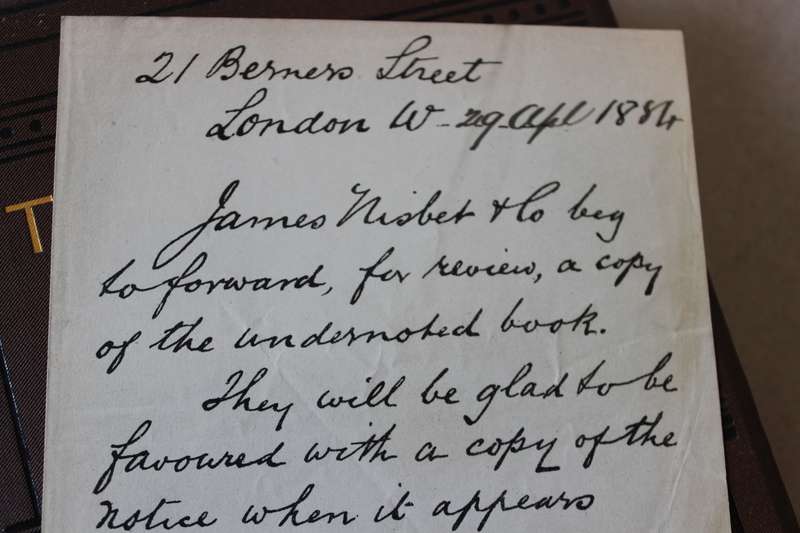 21 Berners Street
London W - 29 Apl 1884
James Nisbet & Co beg
to forward, for review, a copy
of the undernoted book.
They will be glad to be
favoured with a copy of the
notice when it appears
T